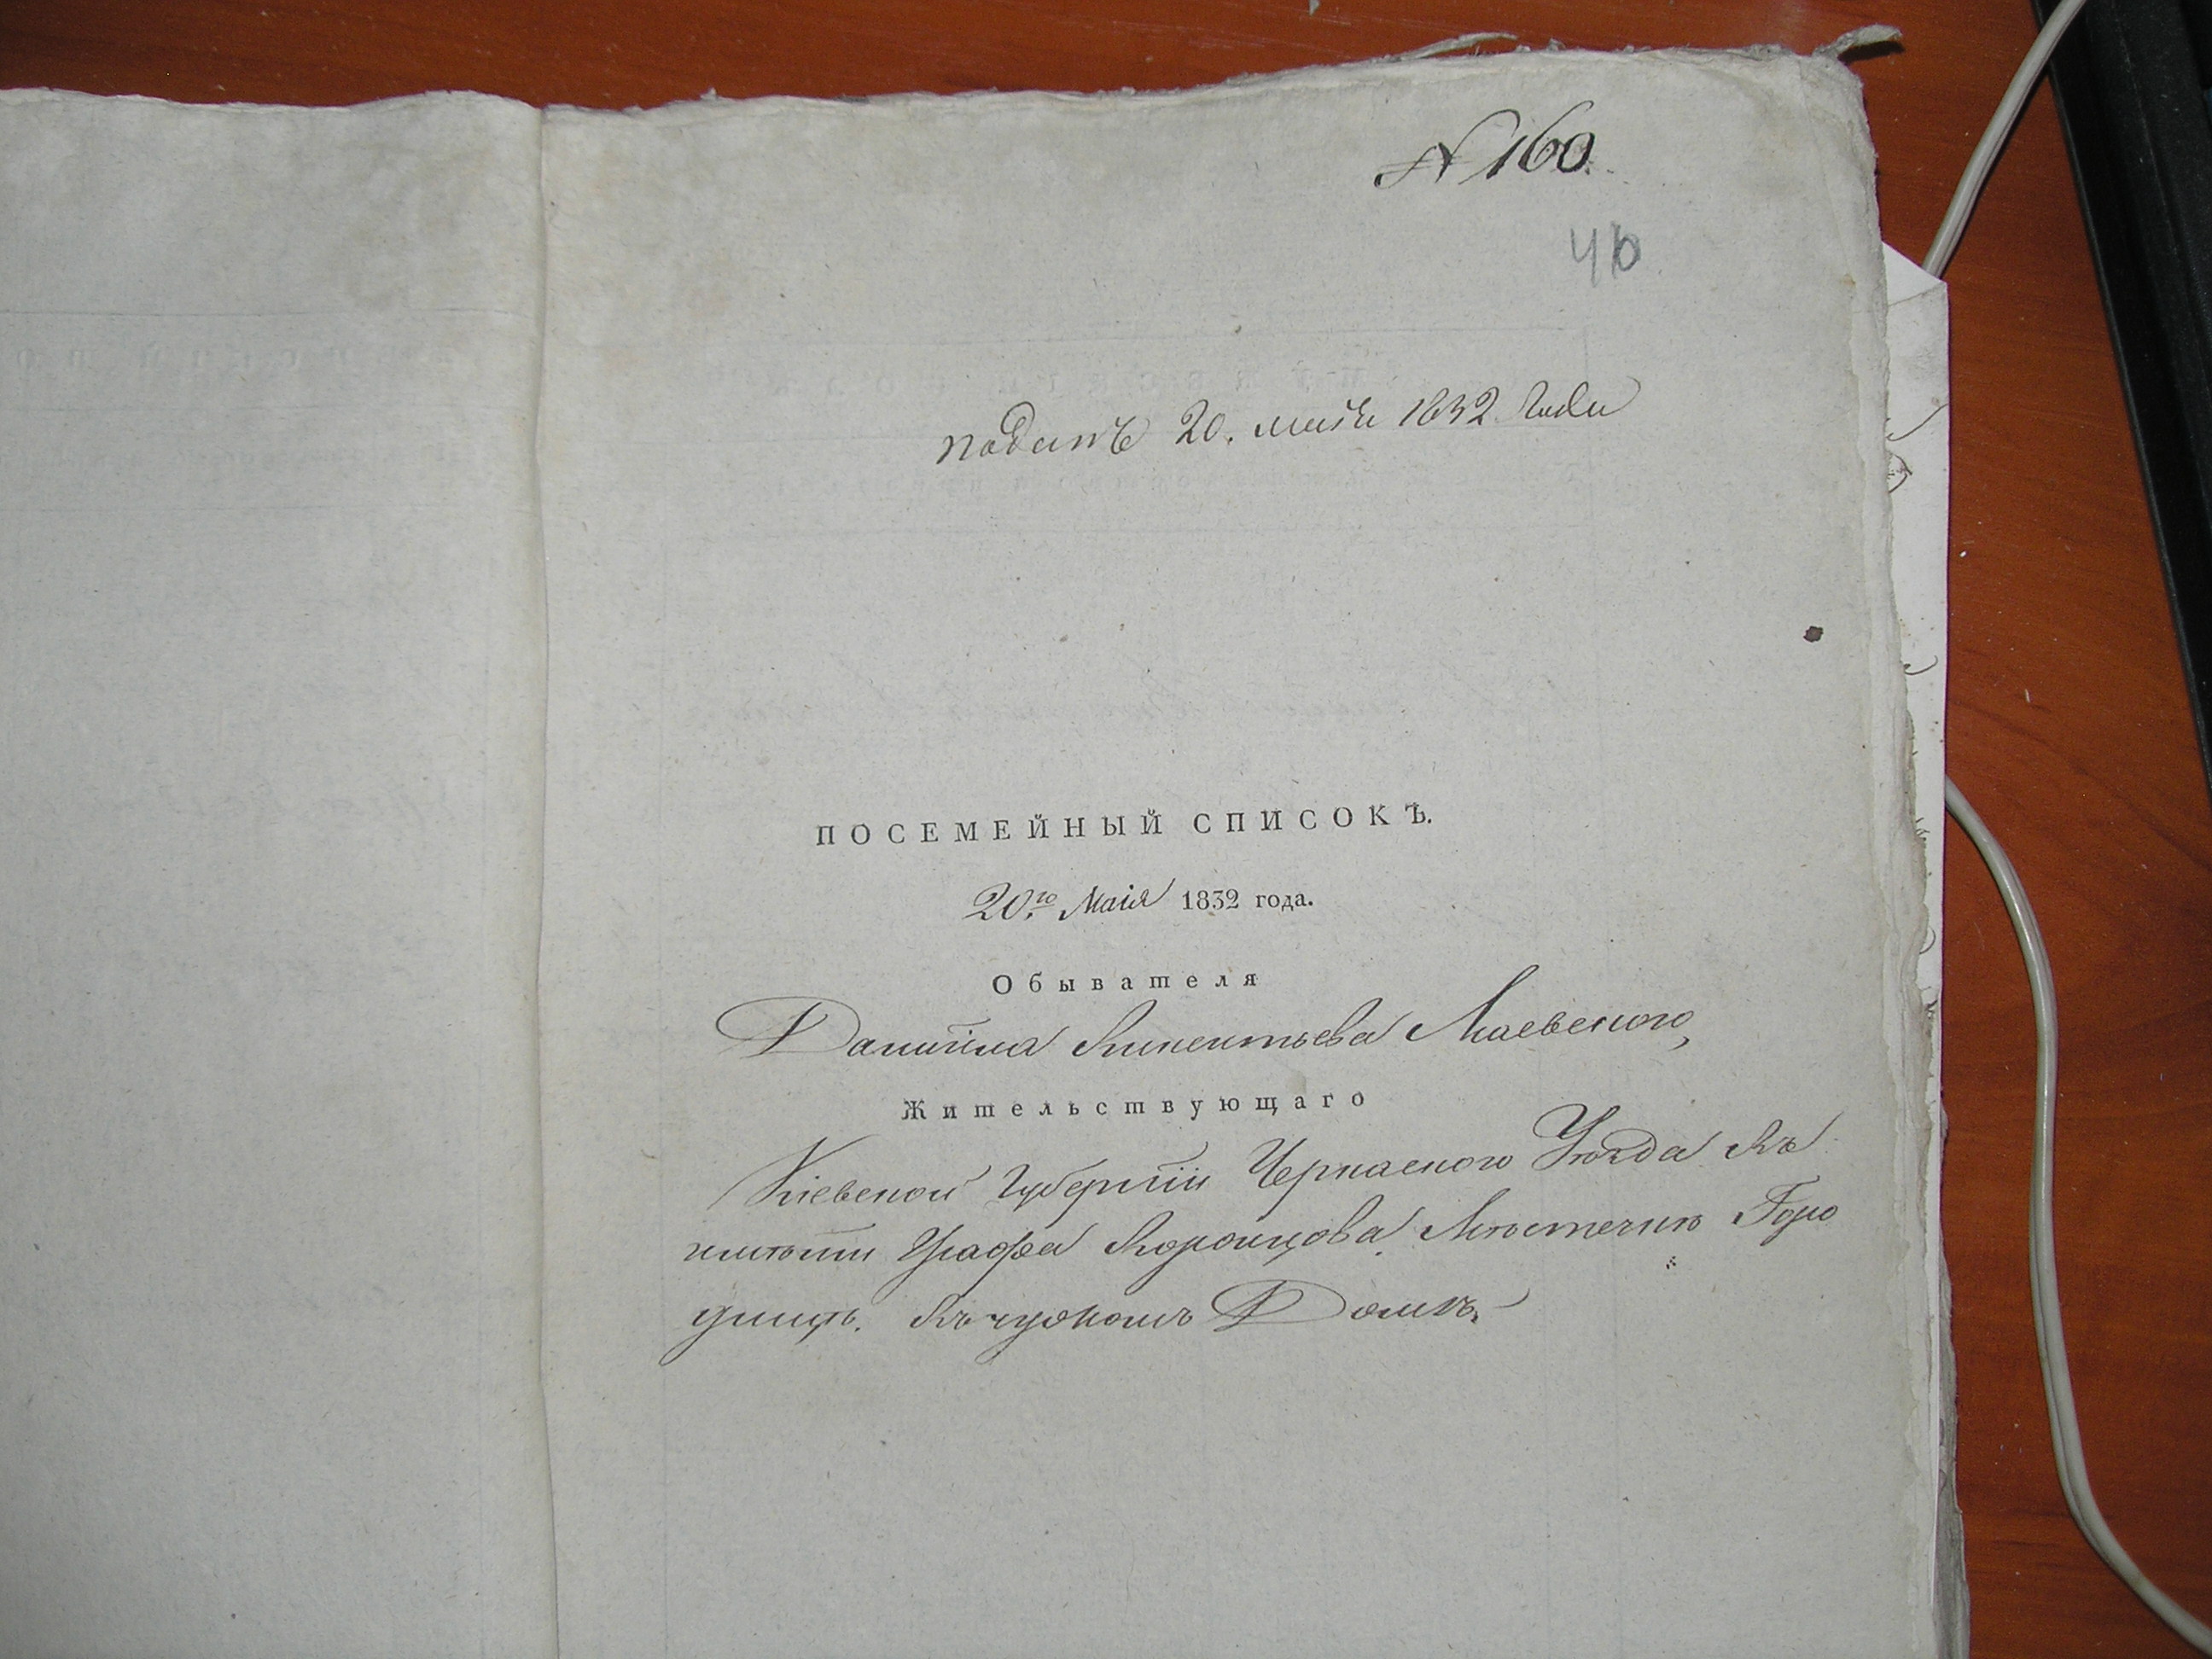 N 160.
40
поданъ 20. маія 1832 года
ПОСЕМЕЙНЫЙ СПИСОКЪ.
20.го Маія 1832 года.
Обывателя
Даніила Викентьева Маевского,
Жительствующаго
Кіевской Губерніи Черкаского Уѣзда Въ
имѣніи Графа Воронцова, Мѣстечкѣ Горо
дищѣ. Въ чужомъ Домѣ.